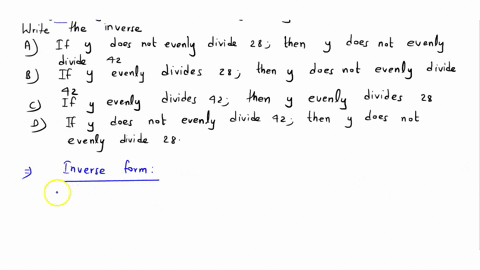 Write the inverse
A) If y does not evenly divide 28; then y does not evenly
divide 42
B) If y evenly divides 28; then y does not evenly divide
42
C) If y evenly divides 42; then y evenly divides 28
D) If y does not evenly divide 42; then y does not
evenly divide 28.
⇒ Inverse form: